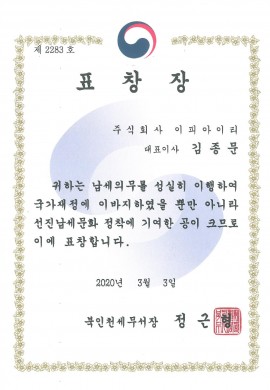 제 2283 호
표 창 장
주식회사 이피아이티
대표이사 김종문
귀하는 납세의무를 성실히 이행하여
국가재정에 이바지하였을 뿐만 아니라
선진납세문화 정착에 기여한 공이 크므로
이에 표창합니다.
2020년 3월 3일
북인천세무서장 정근형